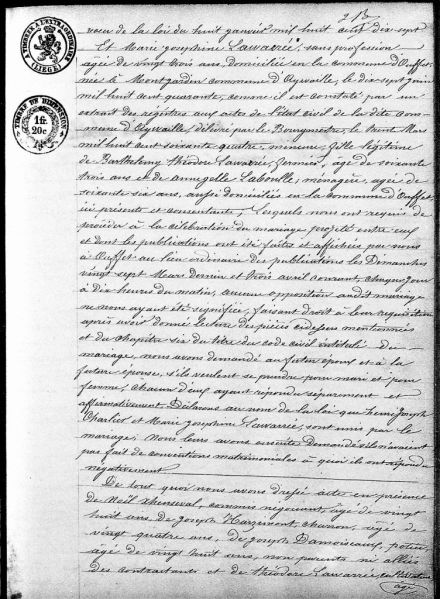 213
A TIMBRER A L'EXTRAORDINAIRE
LIEGE
TIMBRE DE DIMENSION
1 fr.
20c
de la loi du huit janvier mil huit cent dix sept
Et Marie Josephine Lawarrée, sans profession
agée de vingt trois ans, domiciliée en la commune d'Ouffet,
née à Montjardin commune d'Aywaille, le dix sept Juin
mil huit cent quarante, comme il est constaté par un
extrait des registres aux actes de l'état civil de la dite com-
mune d'Aywaille, délivré par le Bourgmestre, le trente Mars
mil huit cent soixante quatre, mineure, fille légitime
de Barthelemy Théodore Lawarrée, fermier, âgé de soixante
trois ans et de Annegelle Laboulle, ménagère, agée de
soixante six ans, aussi domiciliés en la commune d'Ouffet
ici présents et consentants, lesquels nous ont requis de
procéder à la célébration du mariage projeté entre eux
et dont les publications ont été faites et affichées par nous
à Ouffet au lieu ordinaire des publications les Dimanches
vingt sept Mars dernier et trois avril courant, chaque jour
à dix heures du matin, aucune opposition au dit mariage
ne nous ayant été signifiée, faisant droit à leur réquisition
après avoir donné lecture des pièces cidessus mentionnées
et du chapitre six du titre du code civil intitulé Du
mariage, nous avons demandé au futur époux et à la
future épouse, s'ils veulent se prendre pour mari et pour
femme, chacun d'eux ayant répondu séparement et
affirmativement, Déclarons au nom de la loi que henri Joseph
Charlier et Marie Josephine Lawarrée, sont unis par le
mariage; Nous leurs avons ensuite demandé s'ils n'avaient
pas fait de conventions matrimoniales à quoi ils ont répondu
négativement
De tout quoi nous avons dressé acte en présence
de Noël, commis négociant, agé de vingt
huit ans, de Joseph, agé de
vingt quatre ans, de Joseph Damoiseaux, potier,
agé de vingt huit ans, non parents ni alliés
des contractants et de théodore Lawarrée,
agé